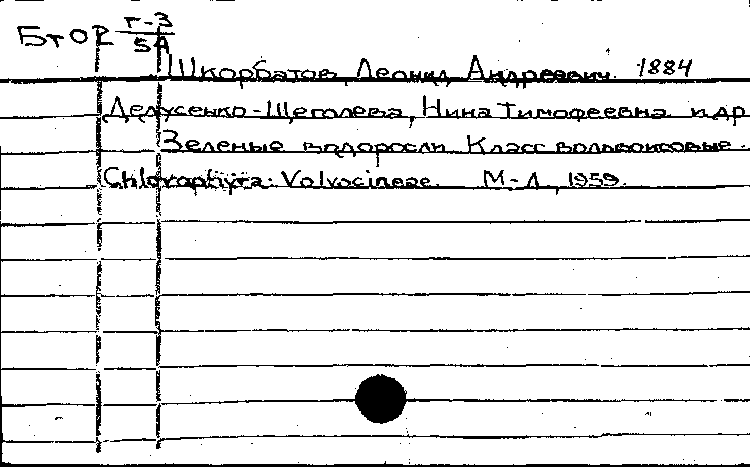 БтОР Г-3
5А
Шкорбатов, Леонид Андреевич. 1884
Дедусенко-Щеголева, Нина Тимофеевна и др
Зеленые водоросли. Класс вольвоксовые.
Chlorophyta: Volvocineae. М-Л, 1959.